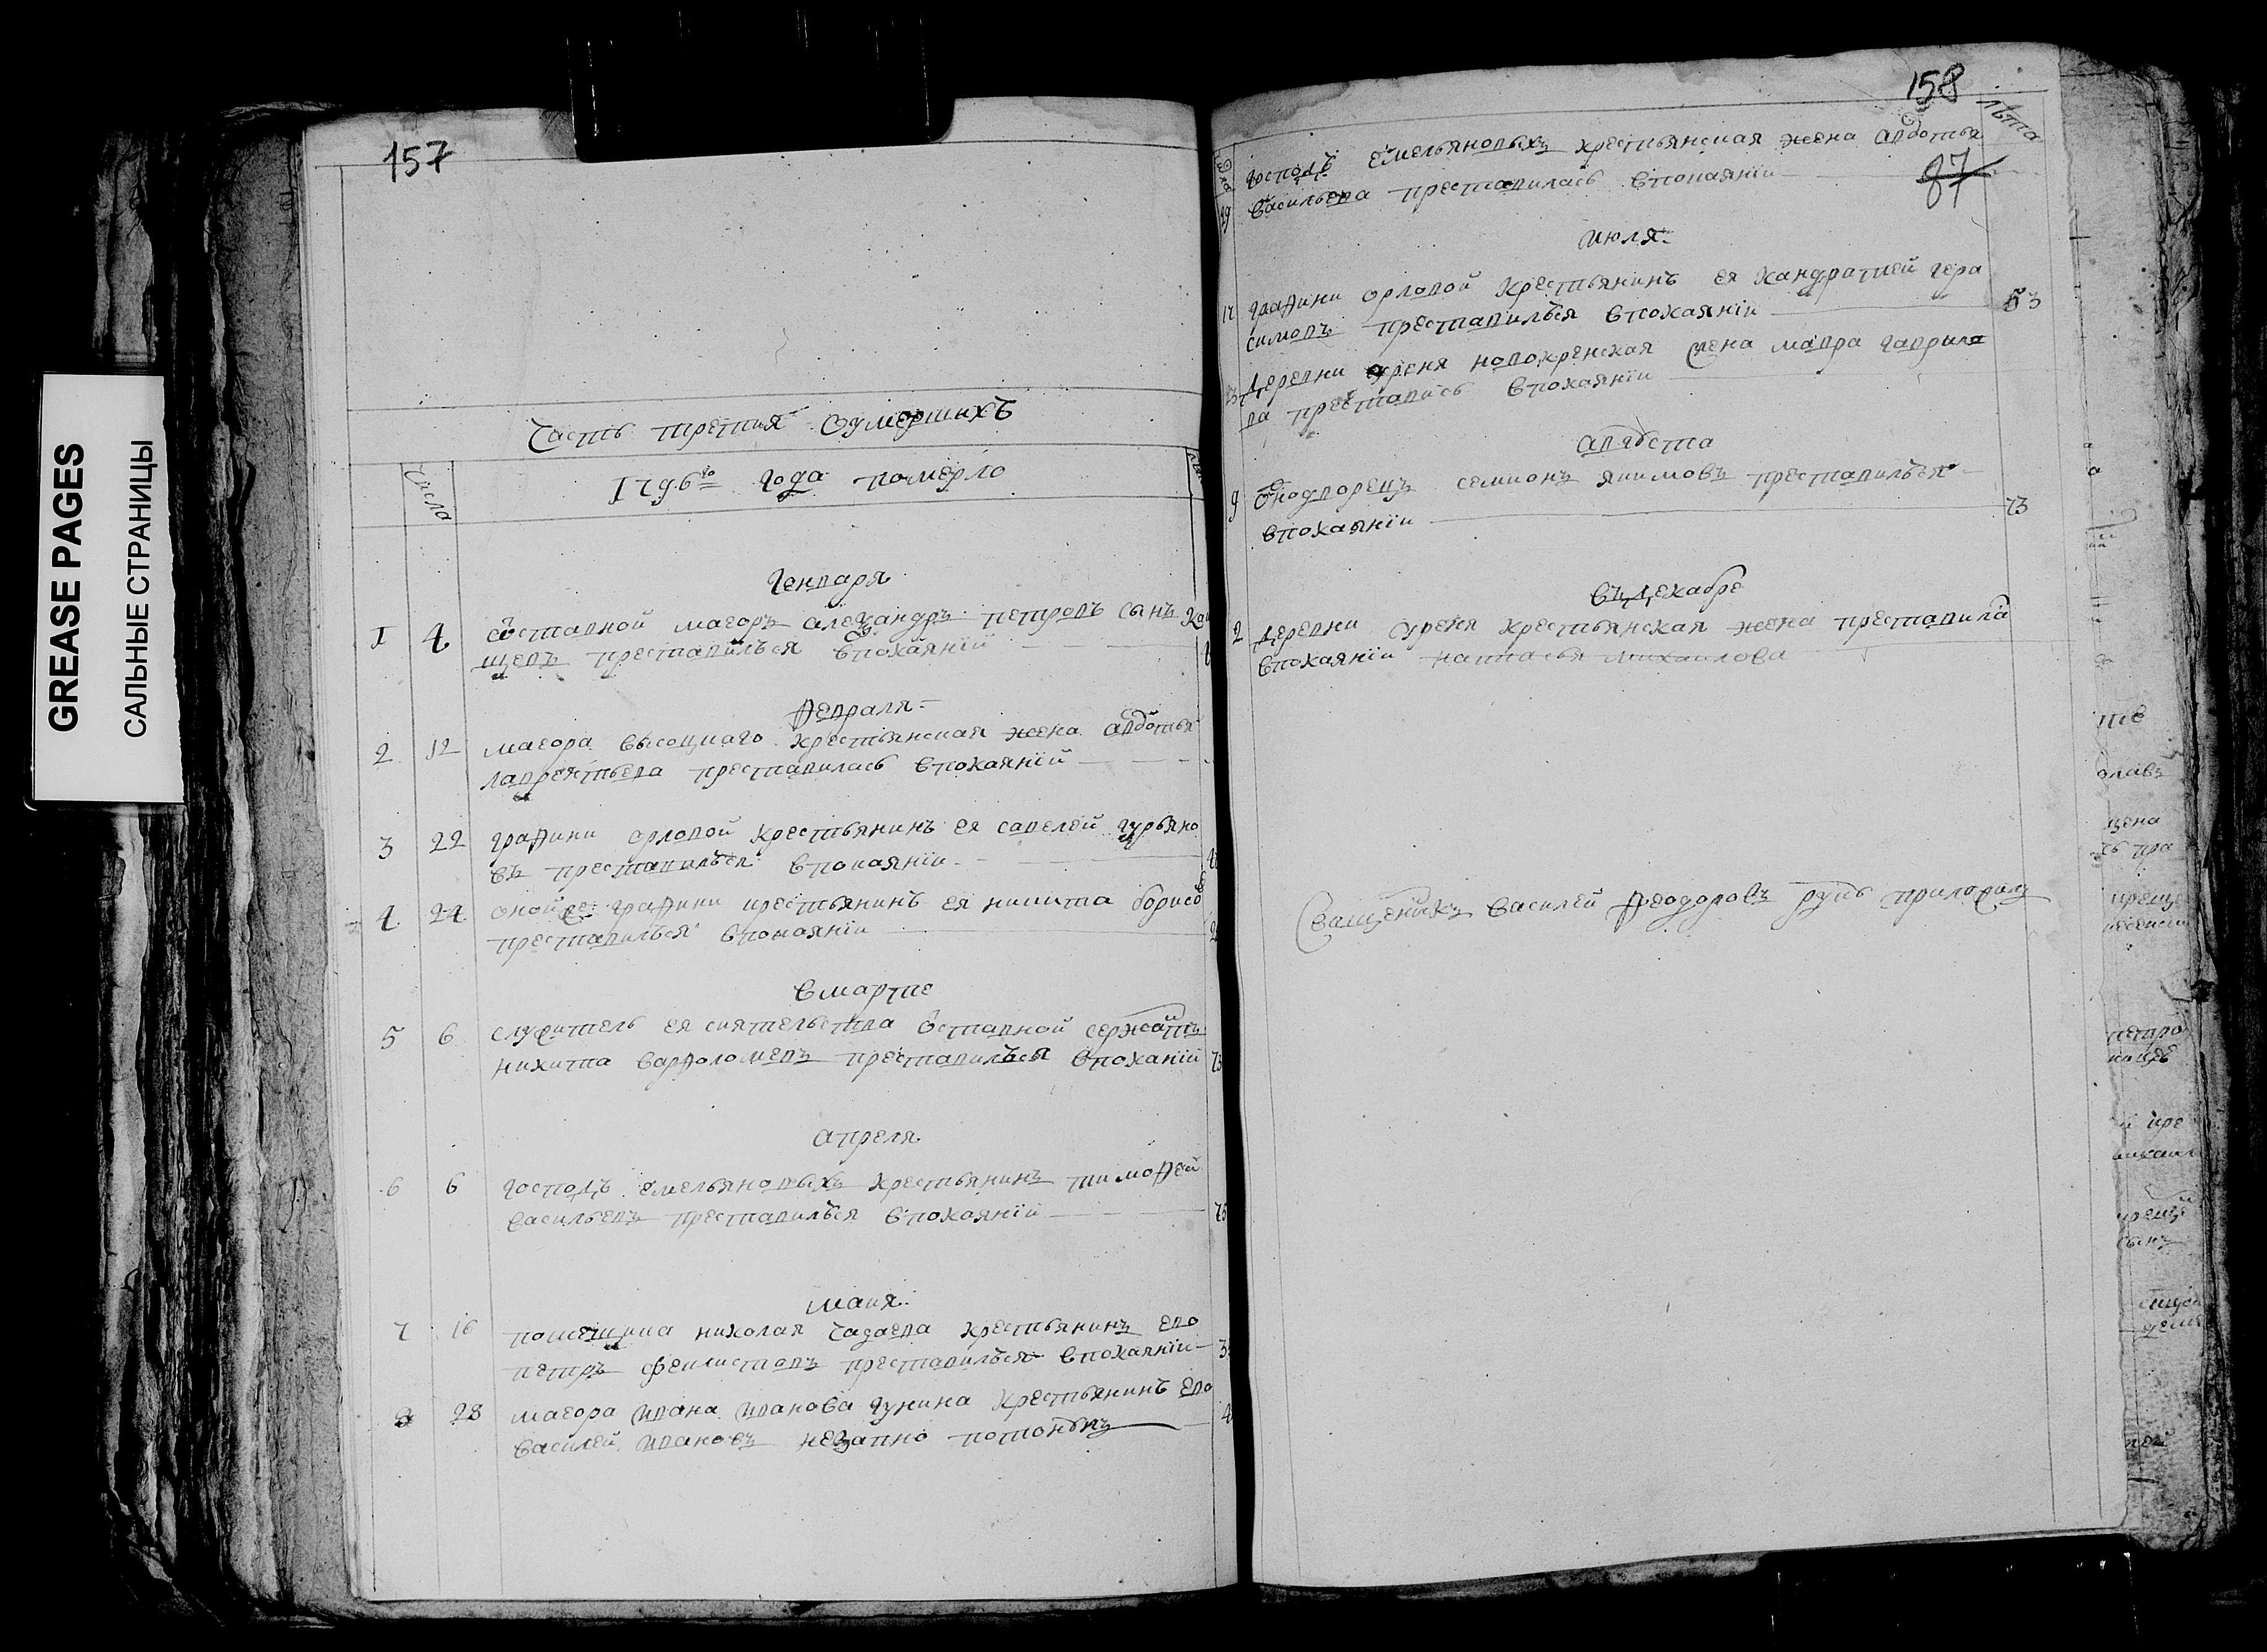 GREASE PAGES
САЛЬНЫЕ СТРАНИЦЫ
157
Часть третия оумершихъ
числа
1796го года померло
генваря
1 4 ѿставной маеоръ алеѯандръ петровъ сынъ
щевъ преставилься впокаянїи
февраля
2 12 маеора высоцкаго крестьянская жена авдотья
лаврентьева преставилась впокаянїй
3 22 графини орловой крестьянинъ ея савелей гурьяно
въ преставилься впокаянїи
4 24 оной же графини крестьянинъ ея никита борисо
преставилься впокаянїи
вмарте
5 6 служитель ея сиятельства ѿставной сержантъ
никита варфоломевъ преставилься впоканїй 73
апреля
6 6 господъ емельяновыхъ крестьянинъ тимофей
васильевъ преставилься впокаянїй 75
маия
7 16 помещика николая чадаева крестьянинъ ево
петръ феклистовъ преставилься впокаянїи
8 28 маеора ивана иванова гунина крестьянинъ ево
василей ивановъ незапно потонулъ
158
лѣта
87
господъ емельяновыхъ крестьянская жена авдотья
васильева преставилась впокаянїи
июля
17 графини орловой крестьянинъ ея кандратией гера
симовъ преставилься впокаянїи 53
деревни уреня новокренская жена мавра гаврило
ва преставись впокаянїи
августа
9 ѻднодворецъ семионъ якимовъ преставилься
впокаянїи 73
въ декабре
2 деревни уреня крестьянская жена преставила
впокаянїи наталья михаилова
Священникъ василей феодоровъ руку приложилъ